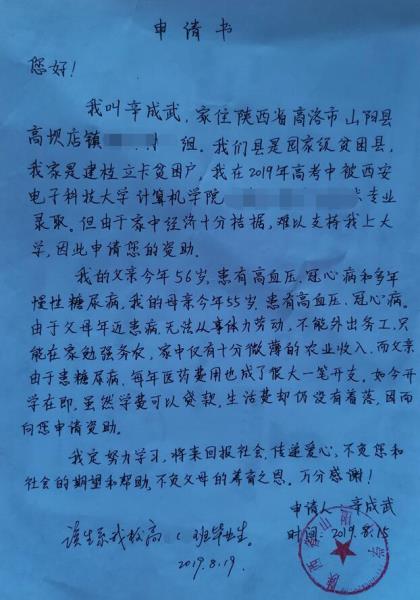 申请书
您好!
我叫辛成武,家住陕西省商洛市山阳县
高坝店镇 组。我们县是国家级贫困县,
我家是建档立卡贫困户,我在2019年高考中被西安
电子科技大学计算机学院 专业
录取。但由于家中经济十分拮据,难以支持我上大
学,因此申请您的资助。
我的父亲今年56岁,患有高血压、冠心病和多年
慢性糖尿病,我的母亲今年55岁,患有高血压、冠心病。
由于父母年迈患病,无法从事体力劳动,不能外出务工,只
能在家勉强务农,家中仅有十分微薄的农业收入,而父亲
由于患糖尿病,每年医药费用也成了很大一笔开支。如今开
学在即,虽然学费可以贷款,生活费却仍没有着落,因而
向您申请资助。
我定努力学习,将来回报社会,传递爱心,不负您和
社会的期望和帮助,不负父母的养育之恩。万分感谢!
申请人:辛成武
时间:2019.8.15
该生系我校高 班毕业生。
2019.8.19.